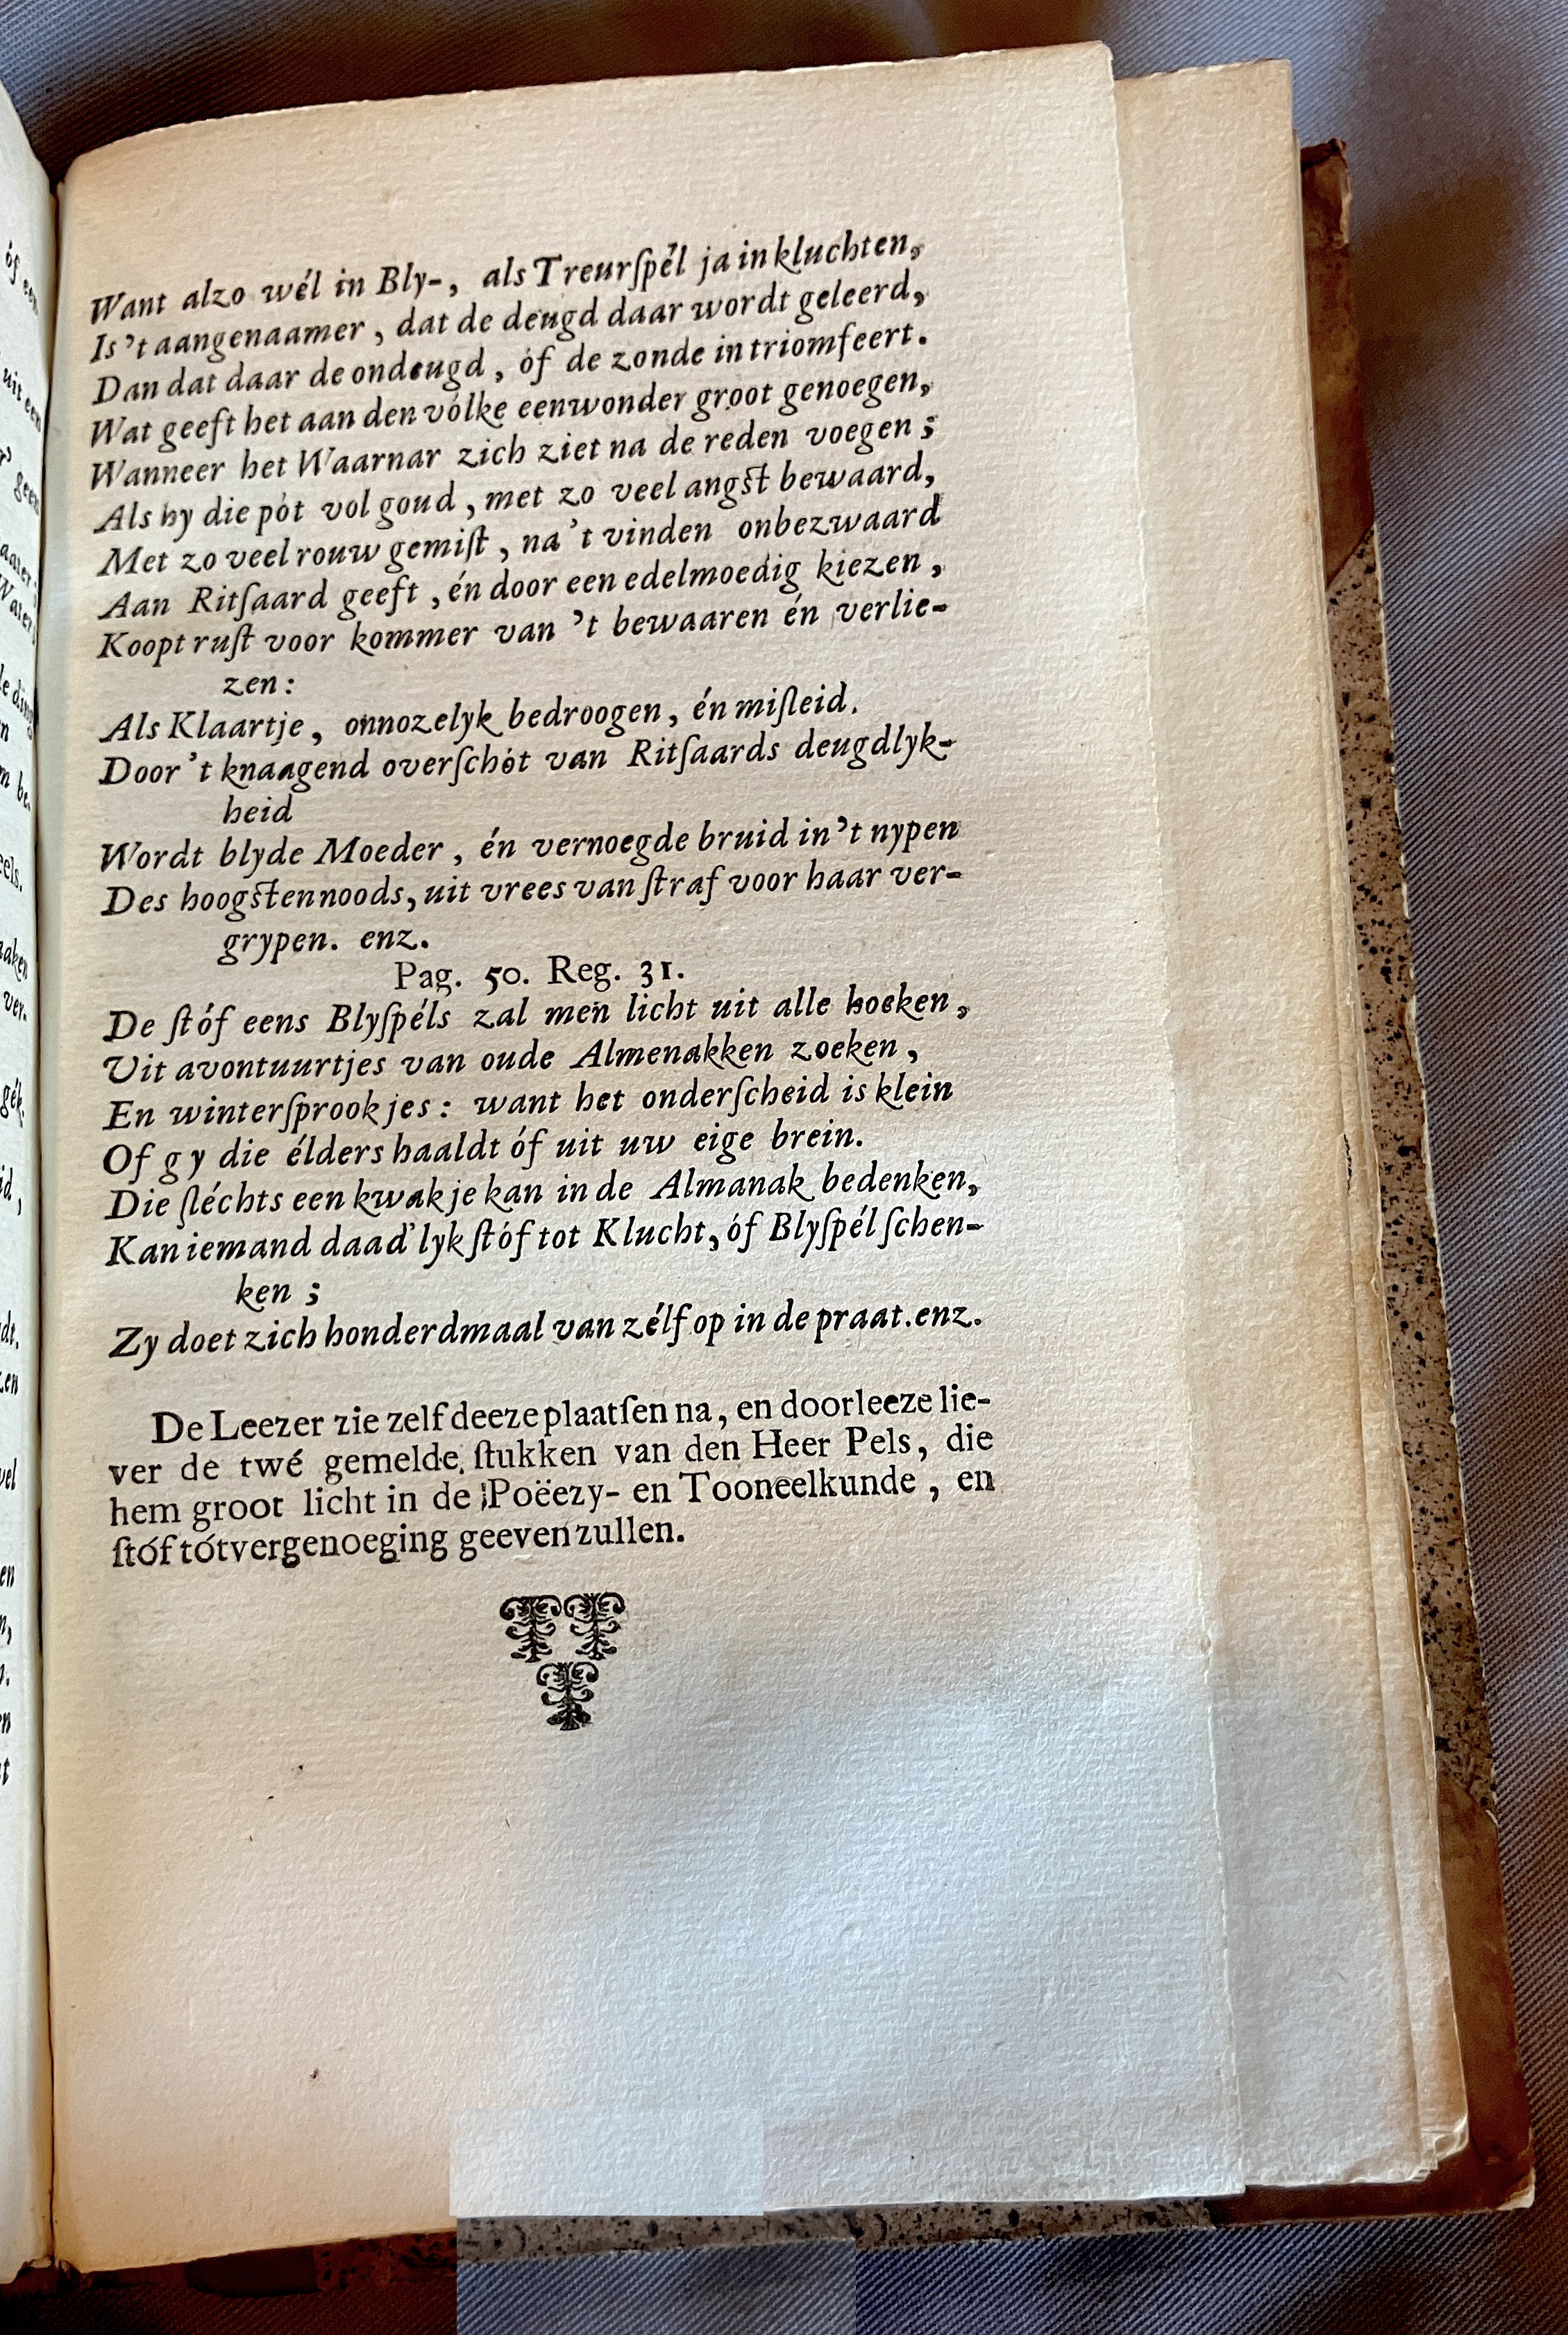 Want alzo wél in Bly-, als Treurſpél ja in kluchten,
Is 't aangenaamer, dat de deugd daar wordt geleerd,
Dan dat daar de ondeugd, óf de zonde in triomfeert.
Wat geeft het aan den vólke een wonder groot genoegen,
Wanneer het Waarnar zich ziet na de reden voegen;
Als hy die pót vol goud, met zo veel angſt bewaard,
Met zo veel rouw gemiſt, na 't vinden onbezwaard
Aan Ritſaard geeft, én door een edelmoedig kiezen,
Koopt ruſt voor kommer van 't bewaaren én verlie-
zen:
Als Klaartje, onnozelyk bedroogen, én miſleid.
Door 't knaagend overſchót van Ritſaards deugdlyk-
heid
Wordt blyde Moeder, én vernoegde bruid in 't nypen
Des hoogſten noods, uit vrees van ſtraf voor haar ver-
grypen. enz.
Pag. 50. Reg. 31.
De ſtóf eens Blyſpéls zal men licht uit alle hoeken,
Uit avontuurtjes van oude Almenakken zoeken,
En winterſprookjes: want het onderſcheid is klein
Of gy die élders haaldt óf uit uw eige brein.
Die ſléchts een kwakje kan in de Almanak bedenken,
Kan iemand daad'lyk ſtóf tot Klucht, óf Blyſpél ſchen-
ken;
Zy doet zich honderdmaal van zélf op in de praat. enz.
De Leezer zie zelf deeze plaatſen na, en doorleeze lie-
ver de twé gemelde ſtukken van den Heer Pels, die
hem groot licht in de Poëezy- en Tooneelkunde, en
ſtóf tót vergenoeging geeven zullen.